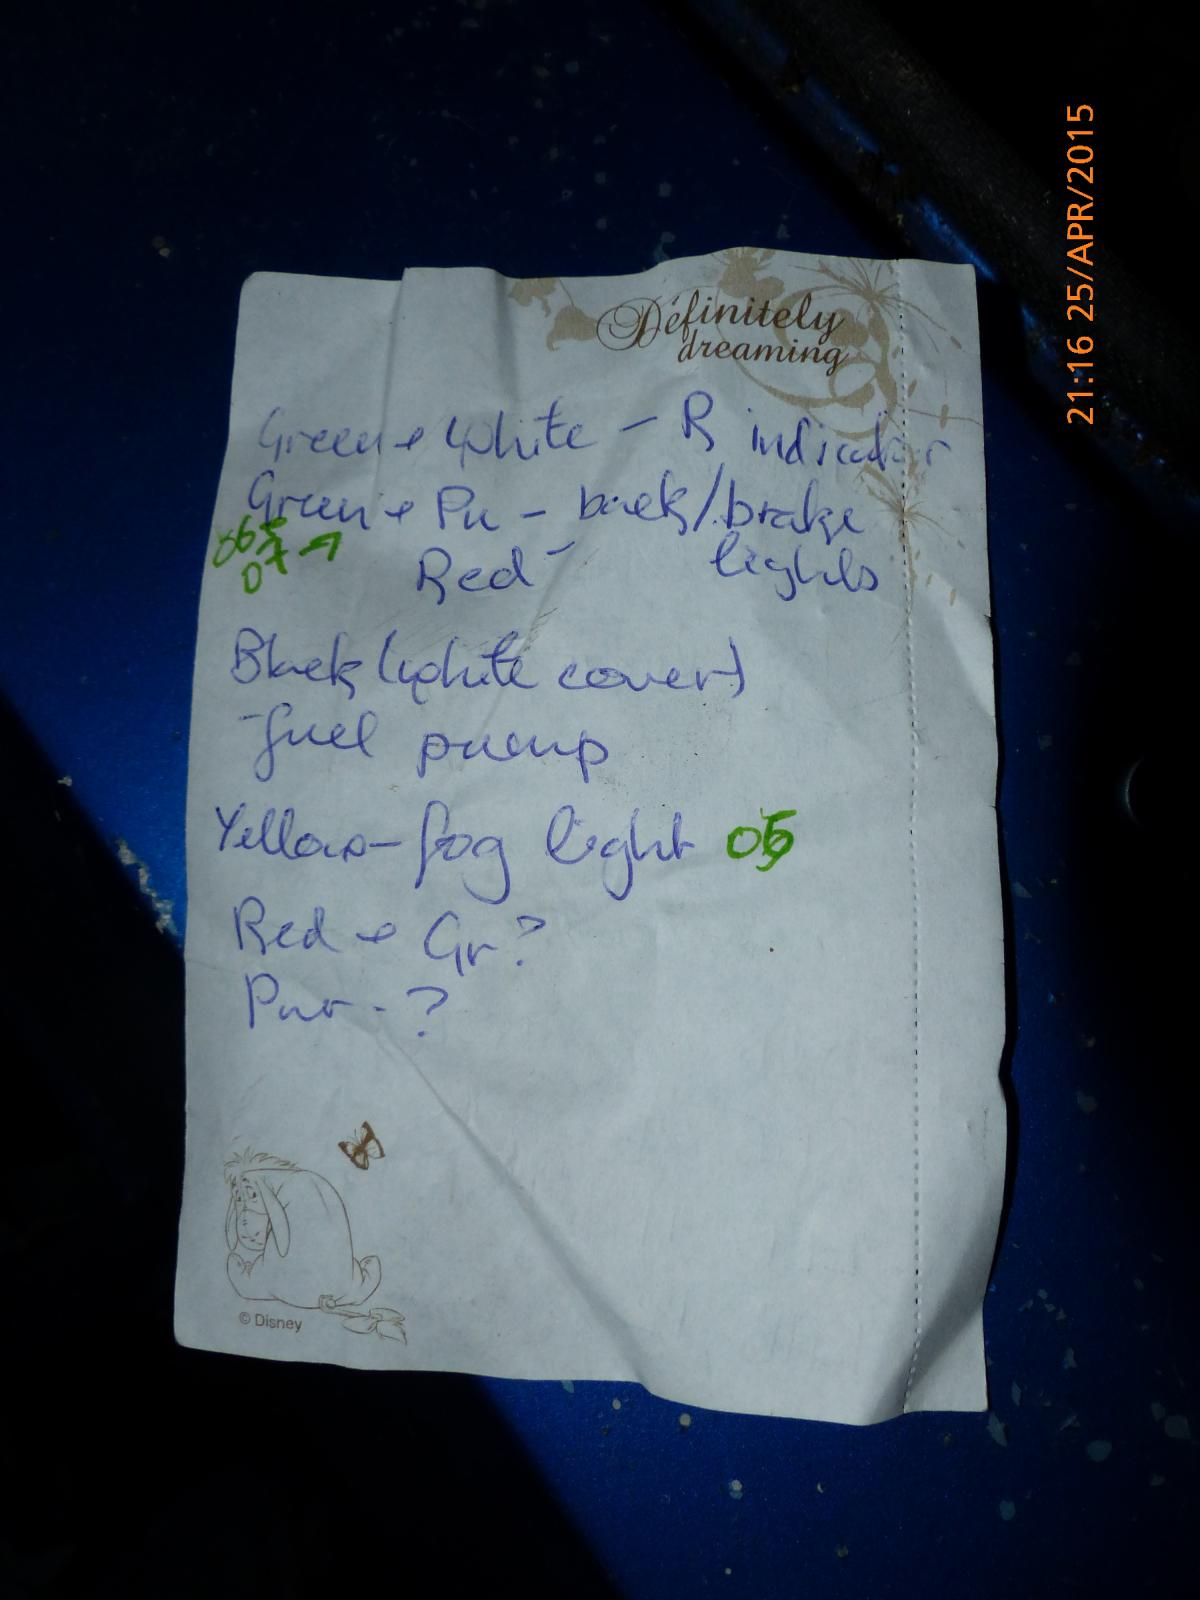 Definitely
dreaming
Green + White - R indicator
Green + Pu - back/brake
Red - lights
Black (white cover)
- fuel pump
Yellow - fog light 05
Red + Gr?
Pur - ?
© Disney
21:16 25/APR/2015